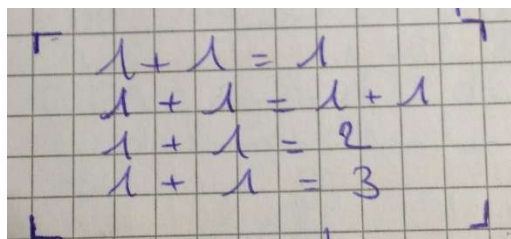 1 + 1 = 1
1 + 1 = 1 + 1
1 + 1 = 2
1 + 1 = 3